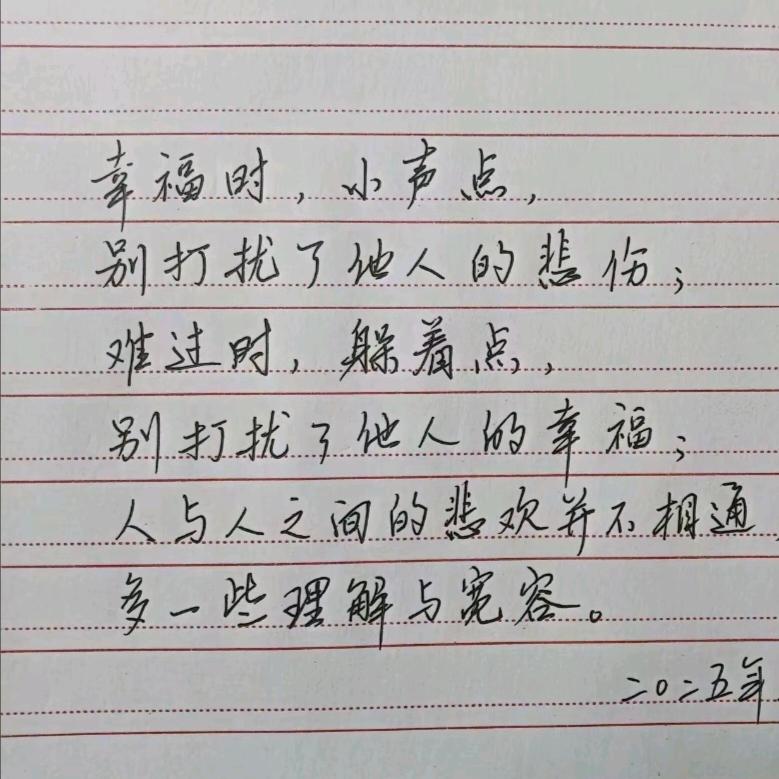 幸福时，小声点，
别打扰了他人的悲伤；
难过时，躲着点，
别打扰了他人的幸福；
人与人之间的悲欢并不相通，
多一些理解与宽容。
二〇二五年